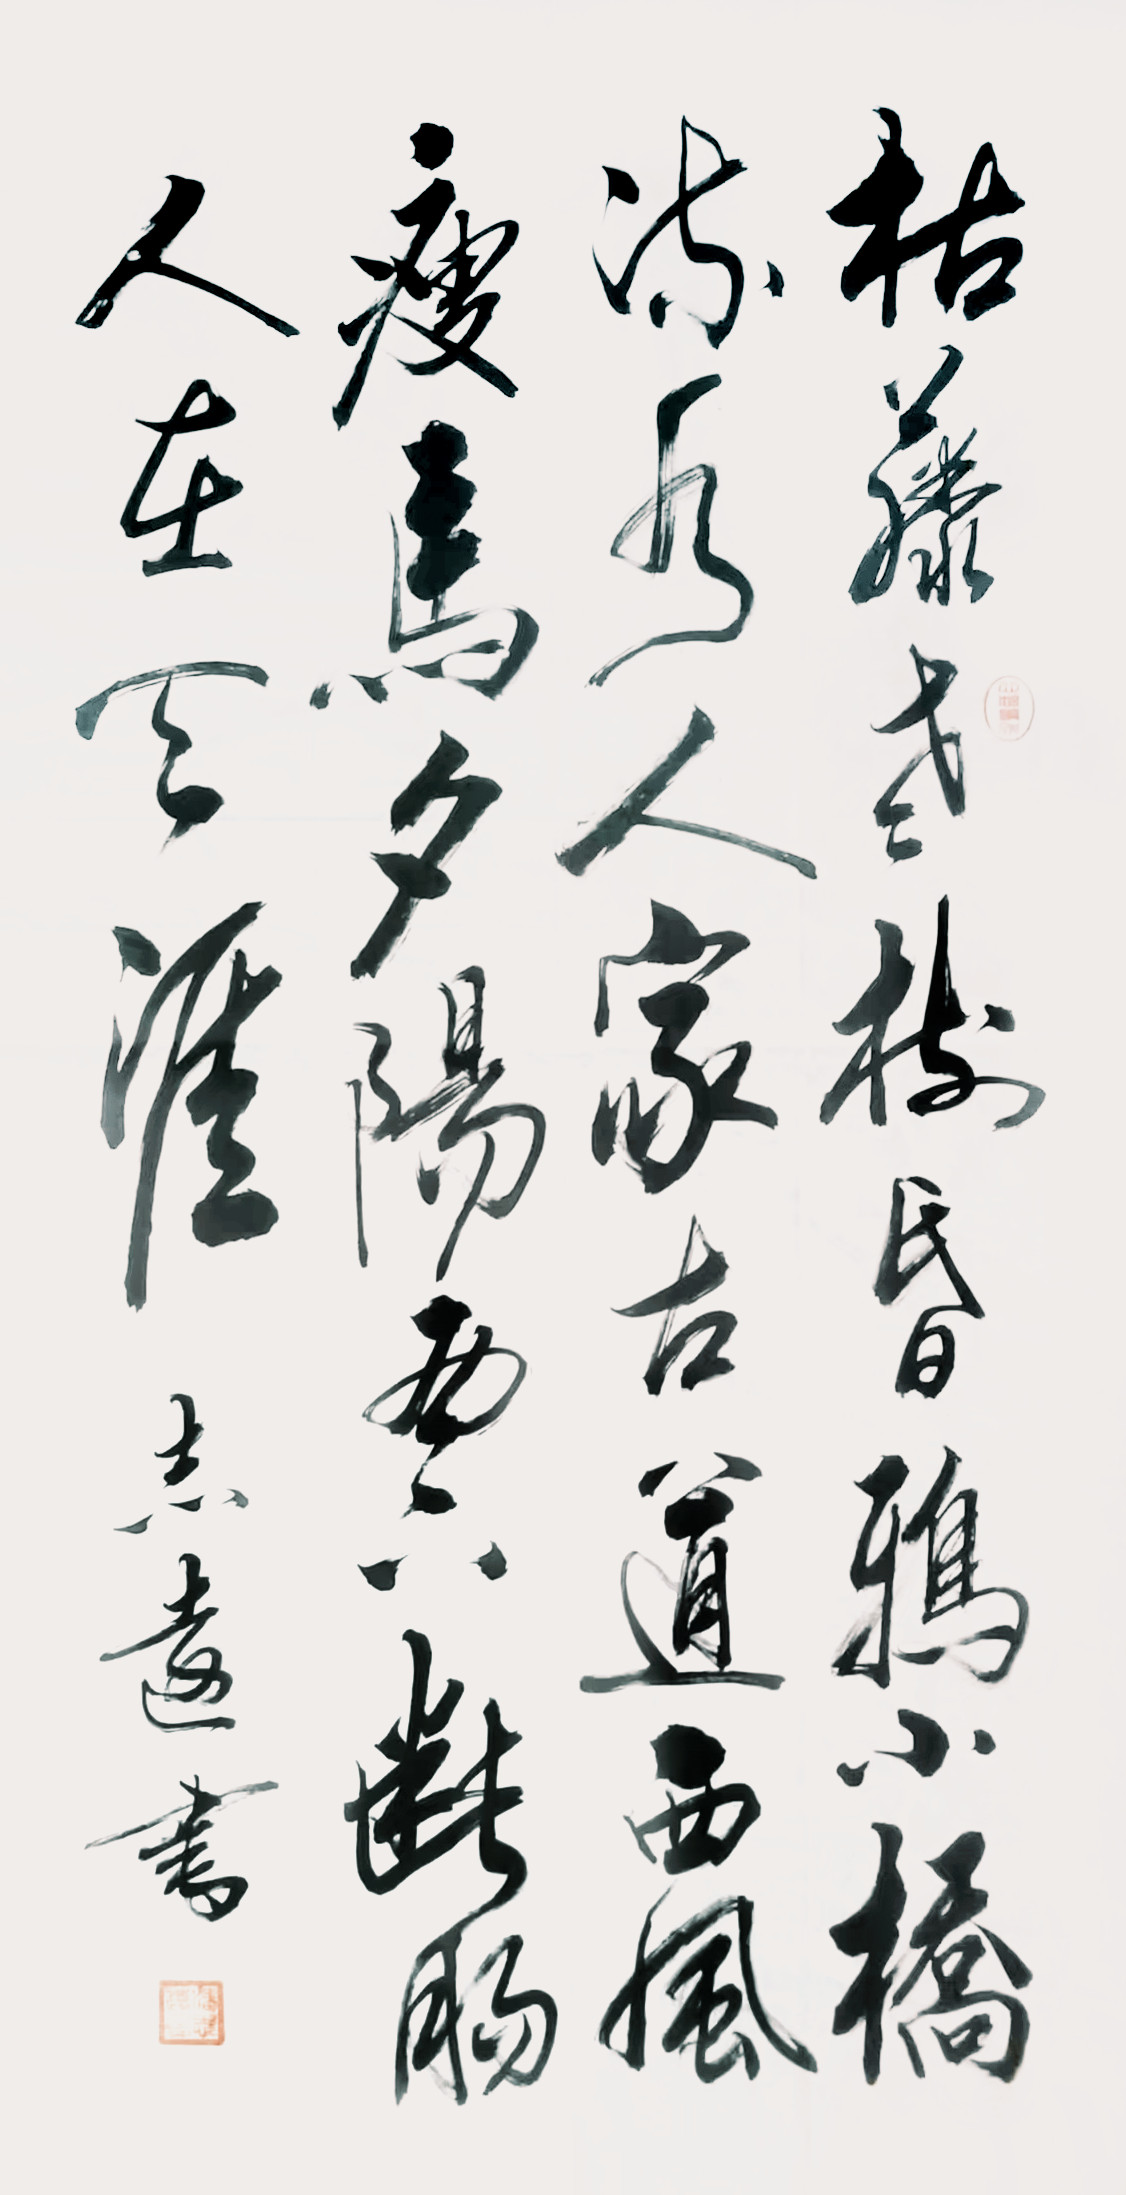 枯藤老樹昏鴉小橋
流水人家古道西風
瘦馬夕陽西下斷腸
人在天涯 志遠書